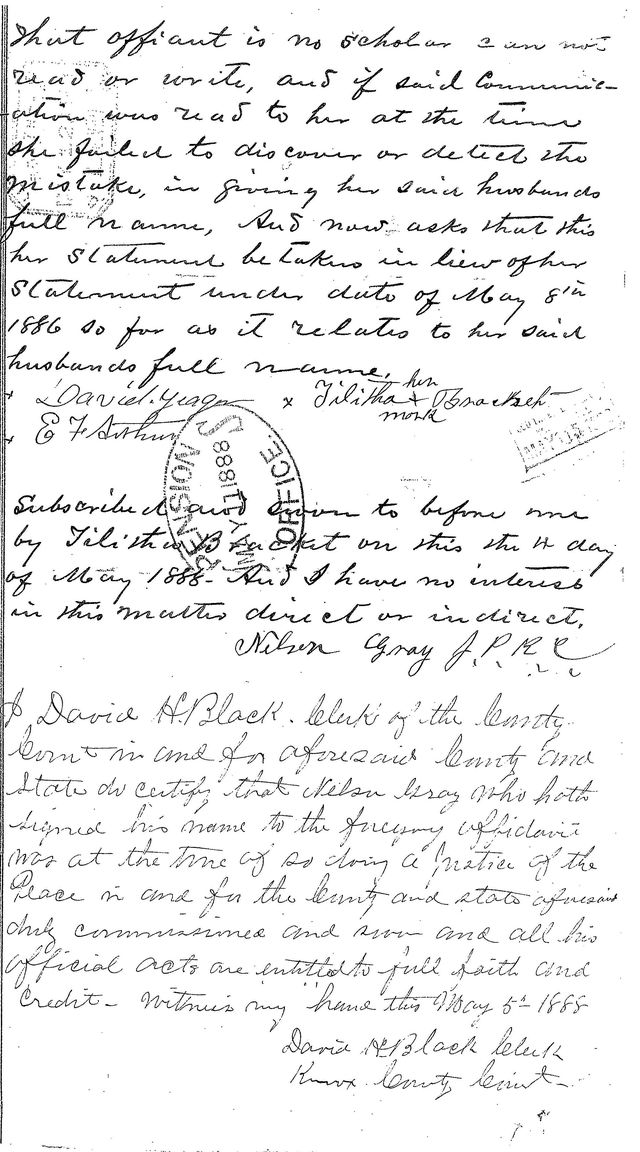 That affiant is no scholar can not
read or write, and if said Communic-
ation was read to her at the time
she failed to discover or detect the
mistake, in giving her said husbands
full name, And now asks that this
her Statement be taken in liew of her
Statement under date of May 8th
1886 so far as it relates to her said
husbands full name.
x David Yeager x Tilitha her x mark Bracket
x E F Arthur
PENSION OFFICE
MAY 11 1888
MAY 15
Subscribed and sworn to before me
by Tilitha Bracket on this the 4 day
of May 1888- And I have no interest
in this matter direct or indirect.
Nelson Gray J. P. K. C
I David H. Black. Clerk of the County
Court in and for aforesaid County and
State do certify that Nelson Gray who hath
signed his name to the foregoing affidavit
was at the time of so doing a Justice of the
Peace in and for the County and state aforesaid
duly commissioned and sworn and all his
official acts are entitled to full faith and
Credit- Witness my hand this May 5th 1888
David H Black Clerk
Knox County Court-